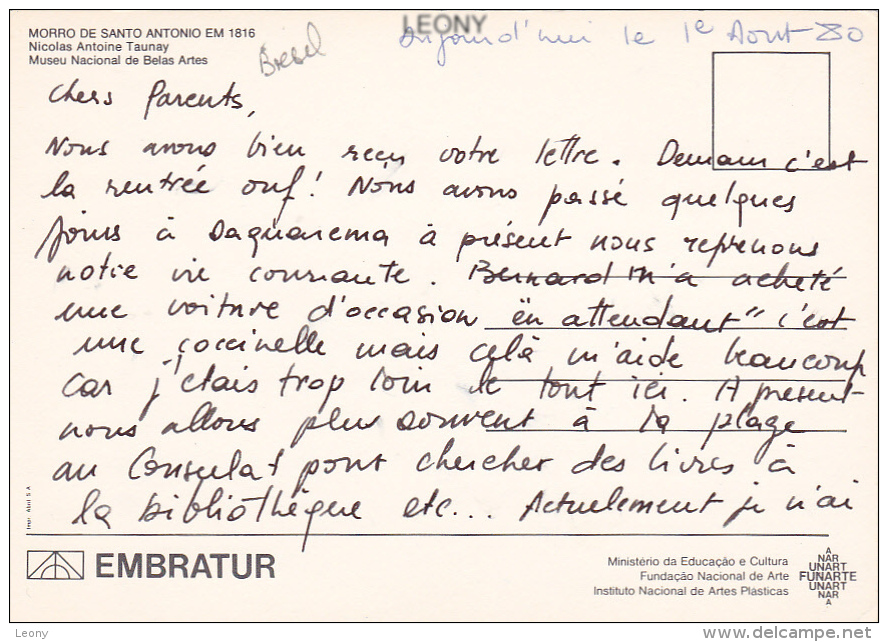 LEONY
MORRO DE SANTO ANTONIO EM 1816
Nicolas Antoine Taunay
Museu Nacional de Belas Artes
Bresil
aujourd'hui le 1e Aout 80
Chers Parents,
Nous avons bien reçu votre lettre. Demain c'est
la rentrée ouf! Nous avons passé quelques
jours à Saquarema à présent nous reprenons
notre vie courante. Bernard m'a acheté
une voiture d'occasion "en attendant" c'est
une coccinelle mais celà m'aide beaucoup
car j'étais trop loin de tout ici. A présent
nous allons plus souvent à la plage
au Consulat pour chercher des livres à
la bibliothèque etc... Actuellement je n'ai
Impr. Abril S.A.
EMBRATUR
Ministério da Educação e Cultura
Fundação Nacional de Arte
Instituto Nacional de Artes Plásticas
A
NAR
UNART
FUNARTE
UNART
NAR
A
Leony
delcampe.net